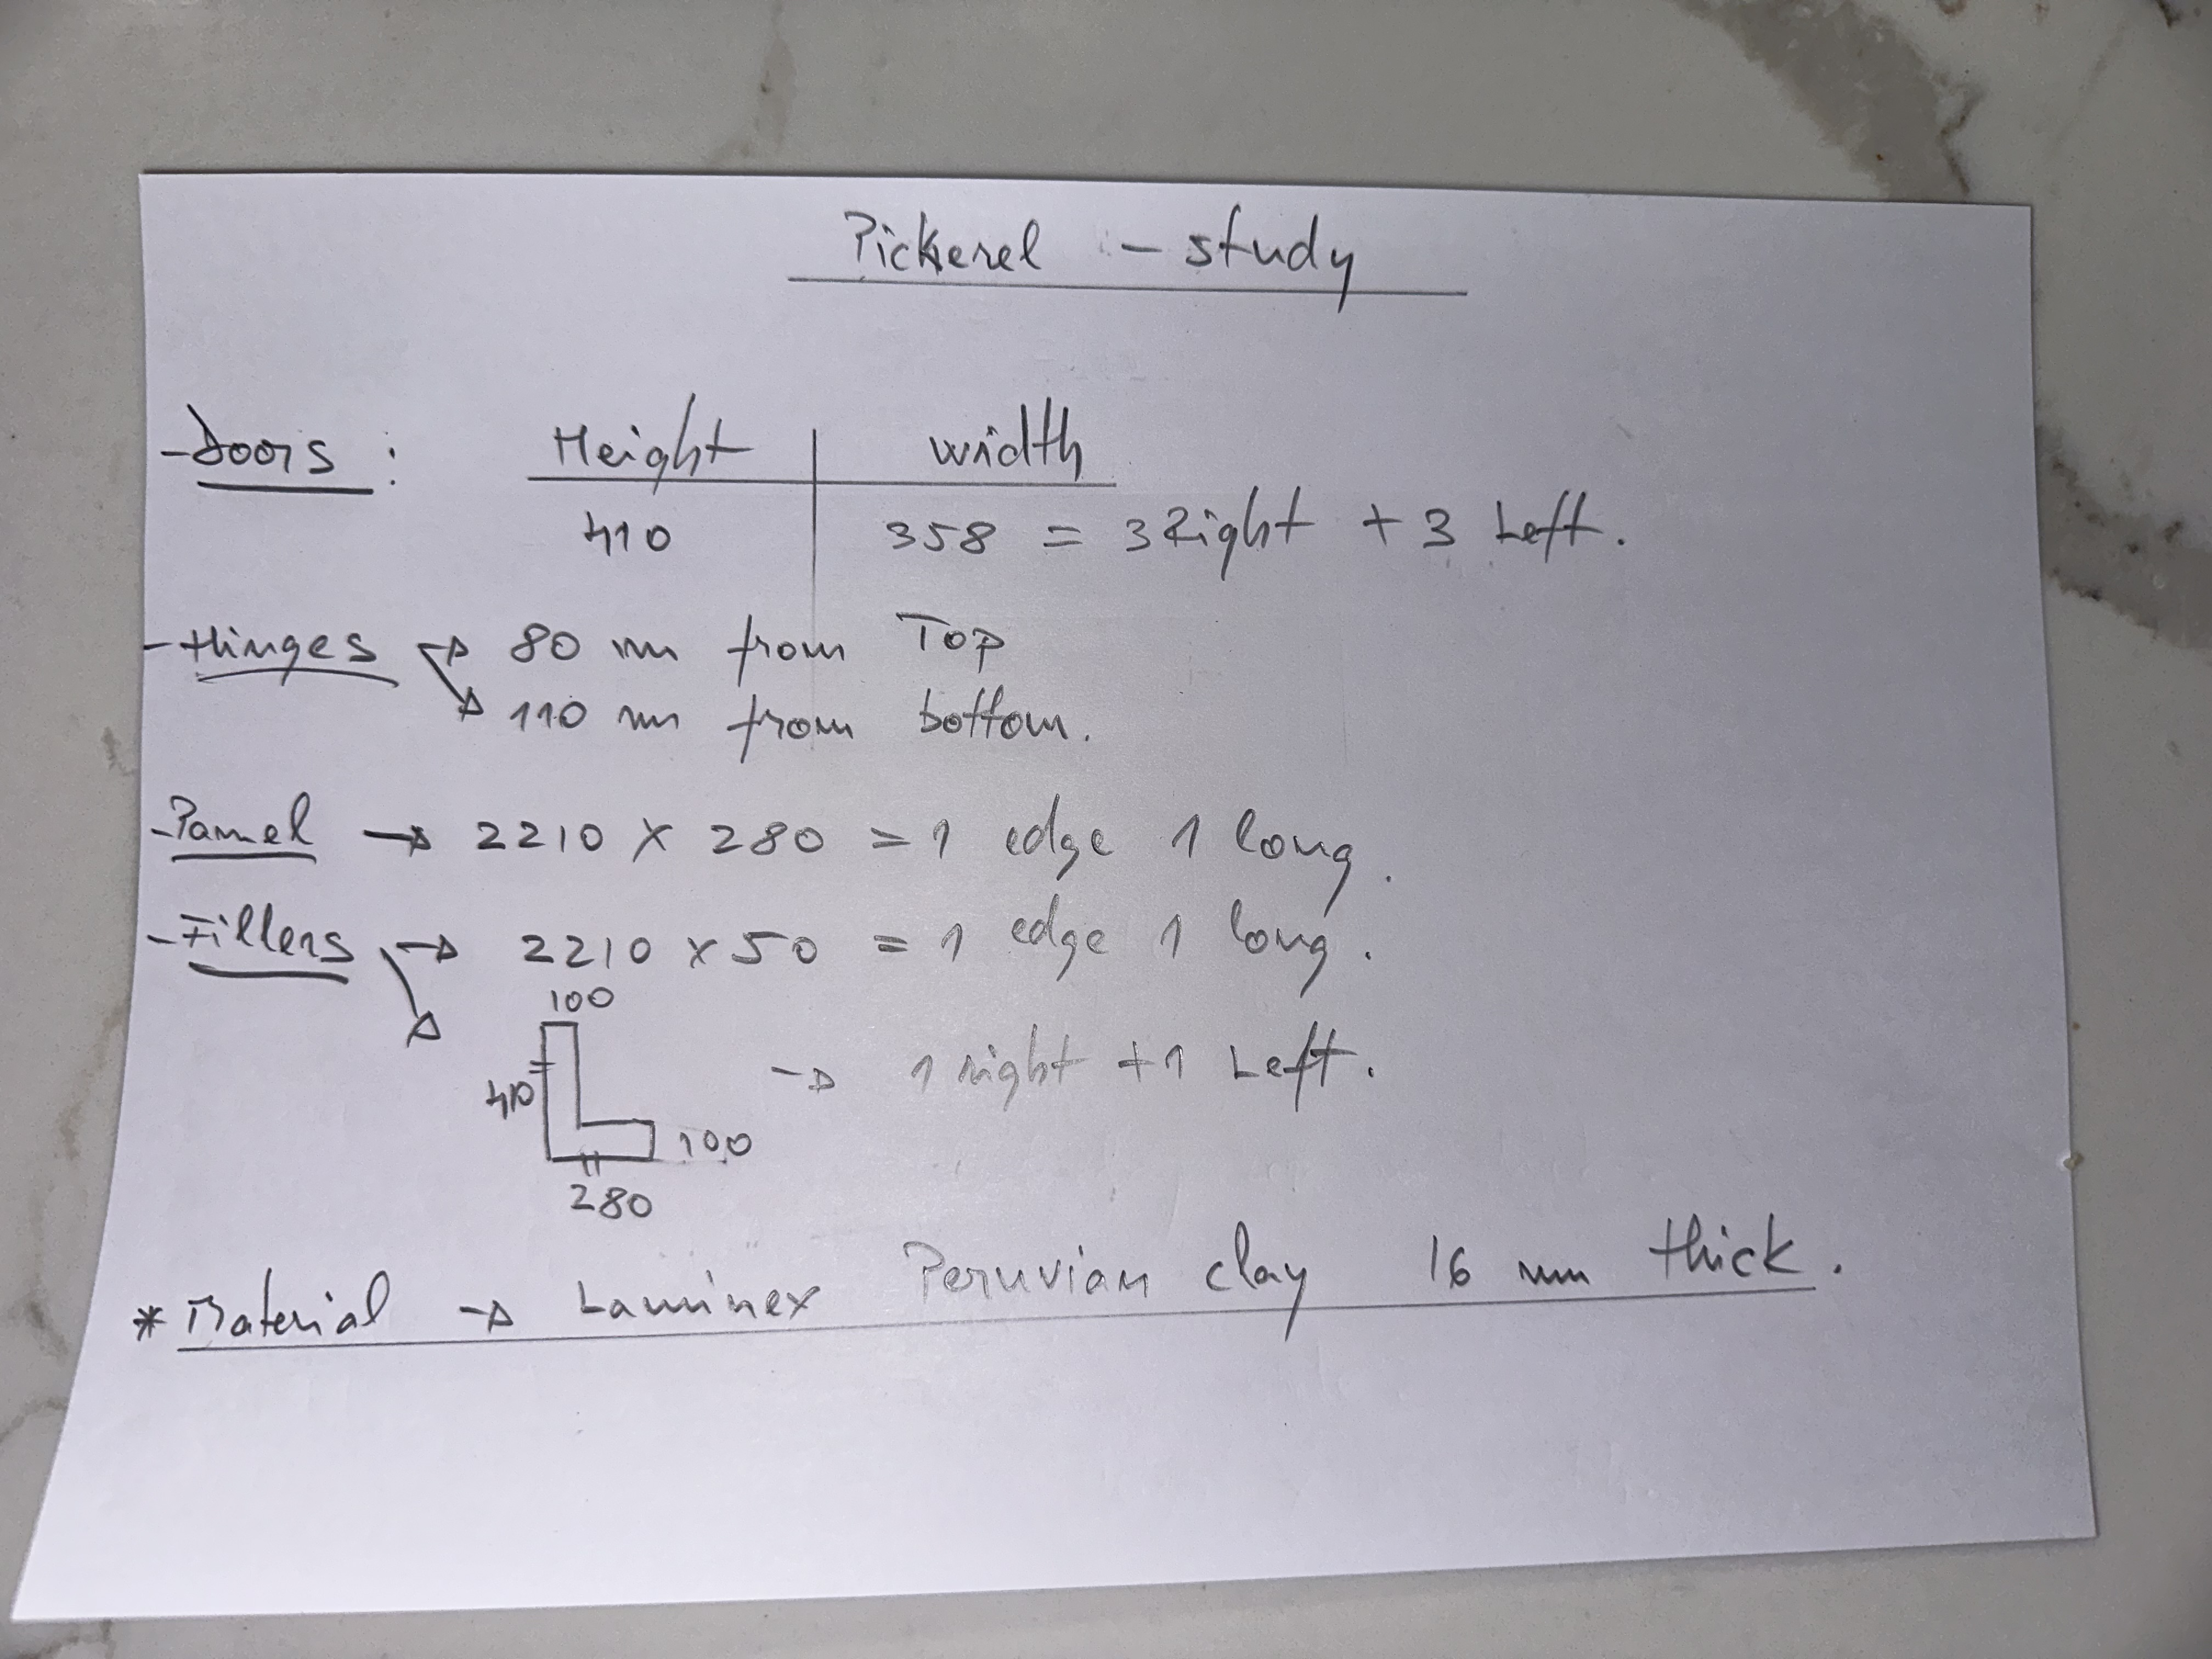 Pickerel - study
- Doors : Height width
410 358 = 3 Right + 3 Left.
- Hinges → 80 mm from Top
→ 110 mm from bottom.
- Panel → 2210 x 280 = 1 edge 1 long.
- Fillers → 2210 x 50 = 1 edge 1 long.
100
410 → 1 right + 1 Left.
100
280
* Material → Laminex Peruvian clay 16 mm thick.